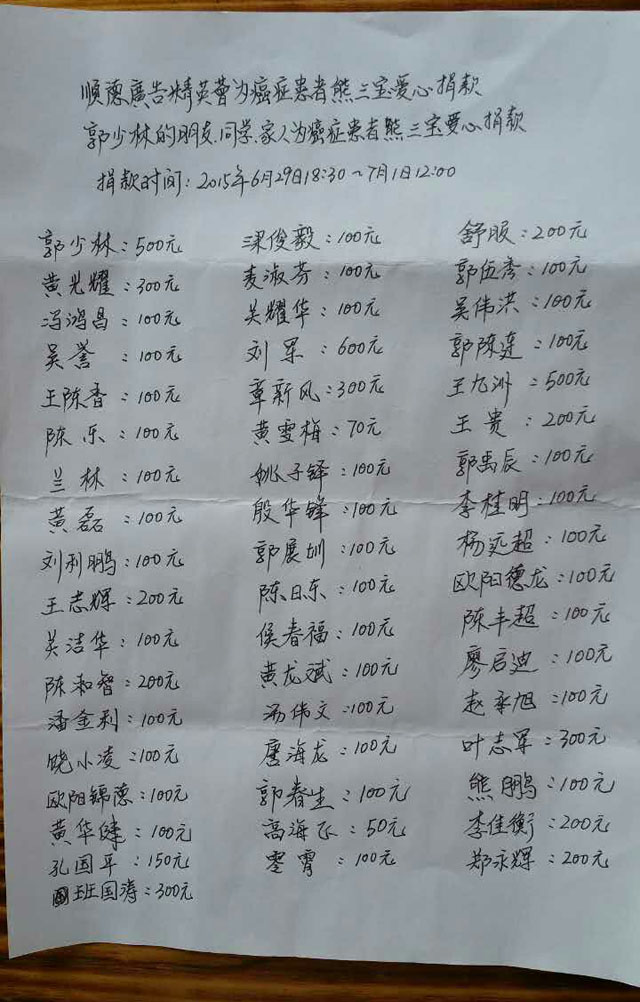 顺德廣告精英薈为癌症患者熊三宝爱心捐款
郭少林的朋友.同学.家人为癌症患者熊三宝爱心捐款
捐款时间：2015年6月29日18:30～7月1日12:00
郭少林：500元
黄光耀：300元
冯鸿昌：100元
吴誉：100元
王陈香：100元
陈乐：100元
兰林：100元
黄磊：100元
刘利鹏：100元
王志辉：200元
吴洁华：100元
陈和智：200元
潘金利：100元
饶小凌：100元
欧阳锦德：100元
黄华健：100元
孔国平：150元
班国涛：300元
梁俊毅：100元
麦淑芬：100元
吴耀华：100元
刘军：600元
章新风：300元
黄雪梅：70元
姚子铎：100元
殷华锋：100元
郭展圳：100元
陈日东：100元
侯春福：100元
黄龙斌：100元
汤伟文：100元
唐海龙：100元
郭春生：100元
高海飞：50元
霄：100元
舒服：200元
郭伍秀：100元
吴伟洪：100元
郭陈莲：100元
王九洲：500元
王贵：200元
郭禹辰：100元
李桂明：100元
杨超：100元
欧阳德龙：100元
陈丰超：100元
廖启迪：100元
赵旭：100元
叶志军：300元
熊鹏：100元
李佳衡：200元
郑永辉：200元